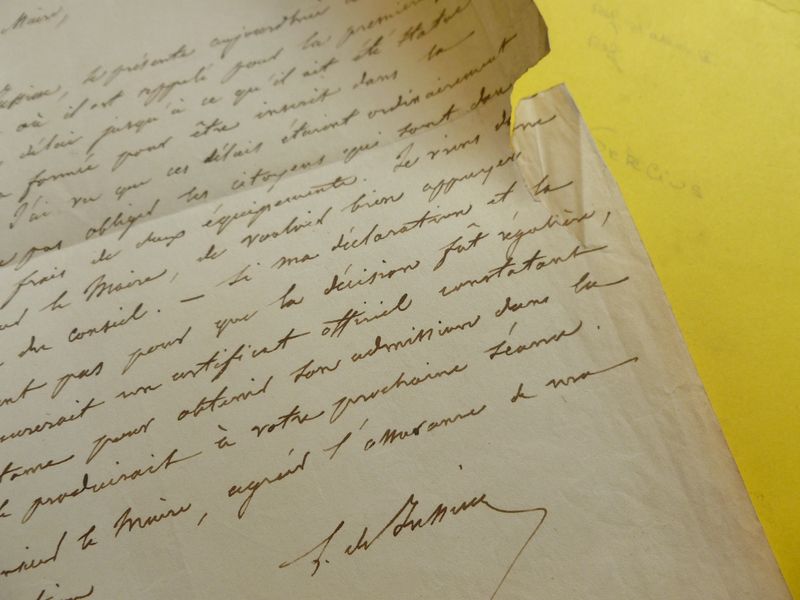 Maire,
Jussieu, se présente aujourd'hui
où il est rappelé pour la première
délai jusqu'à ce qu'il ait été statué
formée pour être inscrit dans la
J'ai vu que ces délais étaient ordinairement
pas obliger les citoyens qui sont dans
frais de deux équipements. Je viens donc
le Maire, de vouloir bien appuyer
du conseil. — Si ma déclaration et la
pas pour que la décision fût régulière,
un certificat officiel constatant
pour obtenir son admission dans la
produirait à votre prochaine séance.
le Maire, agréer l'assurance de ma
L. de Jussieu